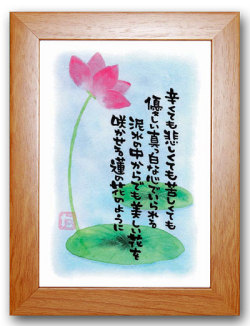 辛くても悲しくても苦しくても
優しい真っ白な心でいられる
泥水の中からでも美しい花を
咲かせる蓮の花のように